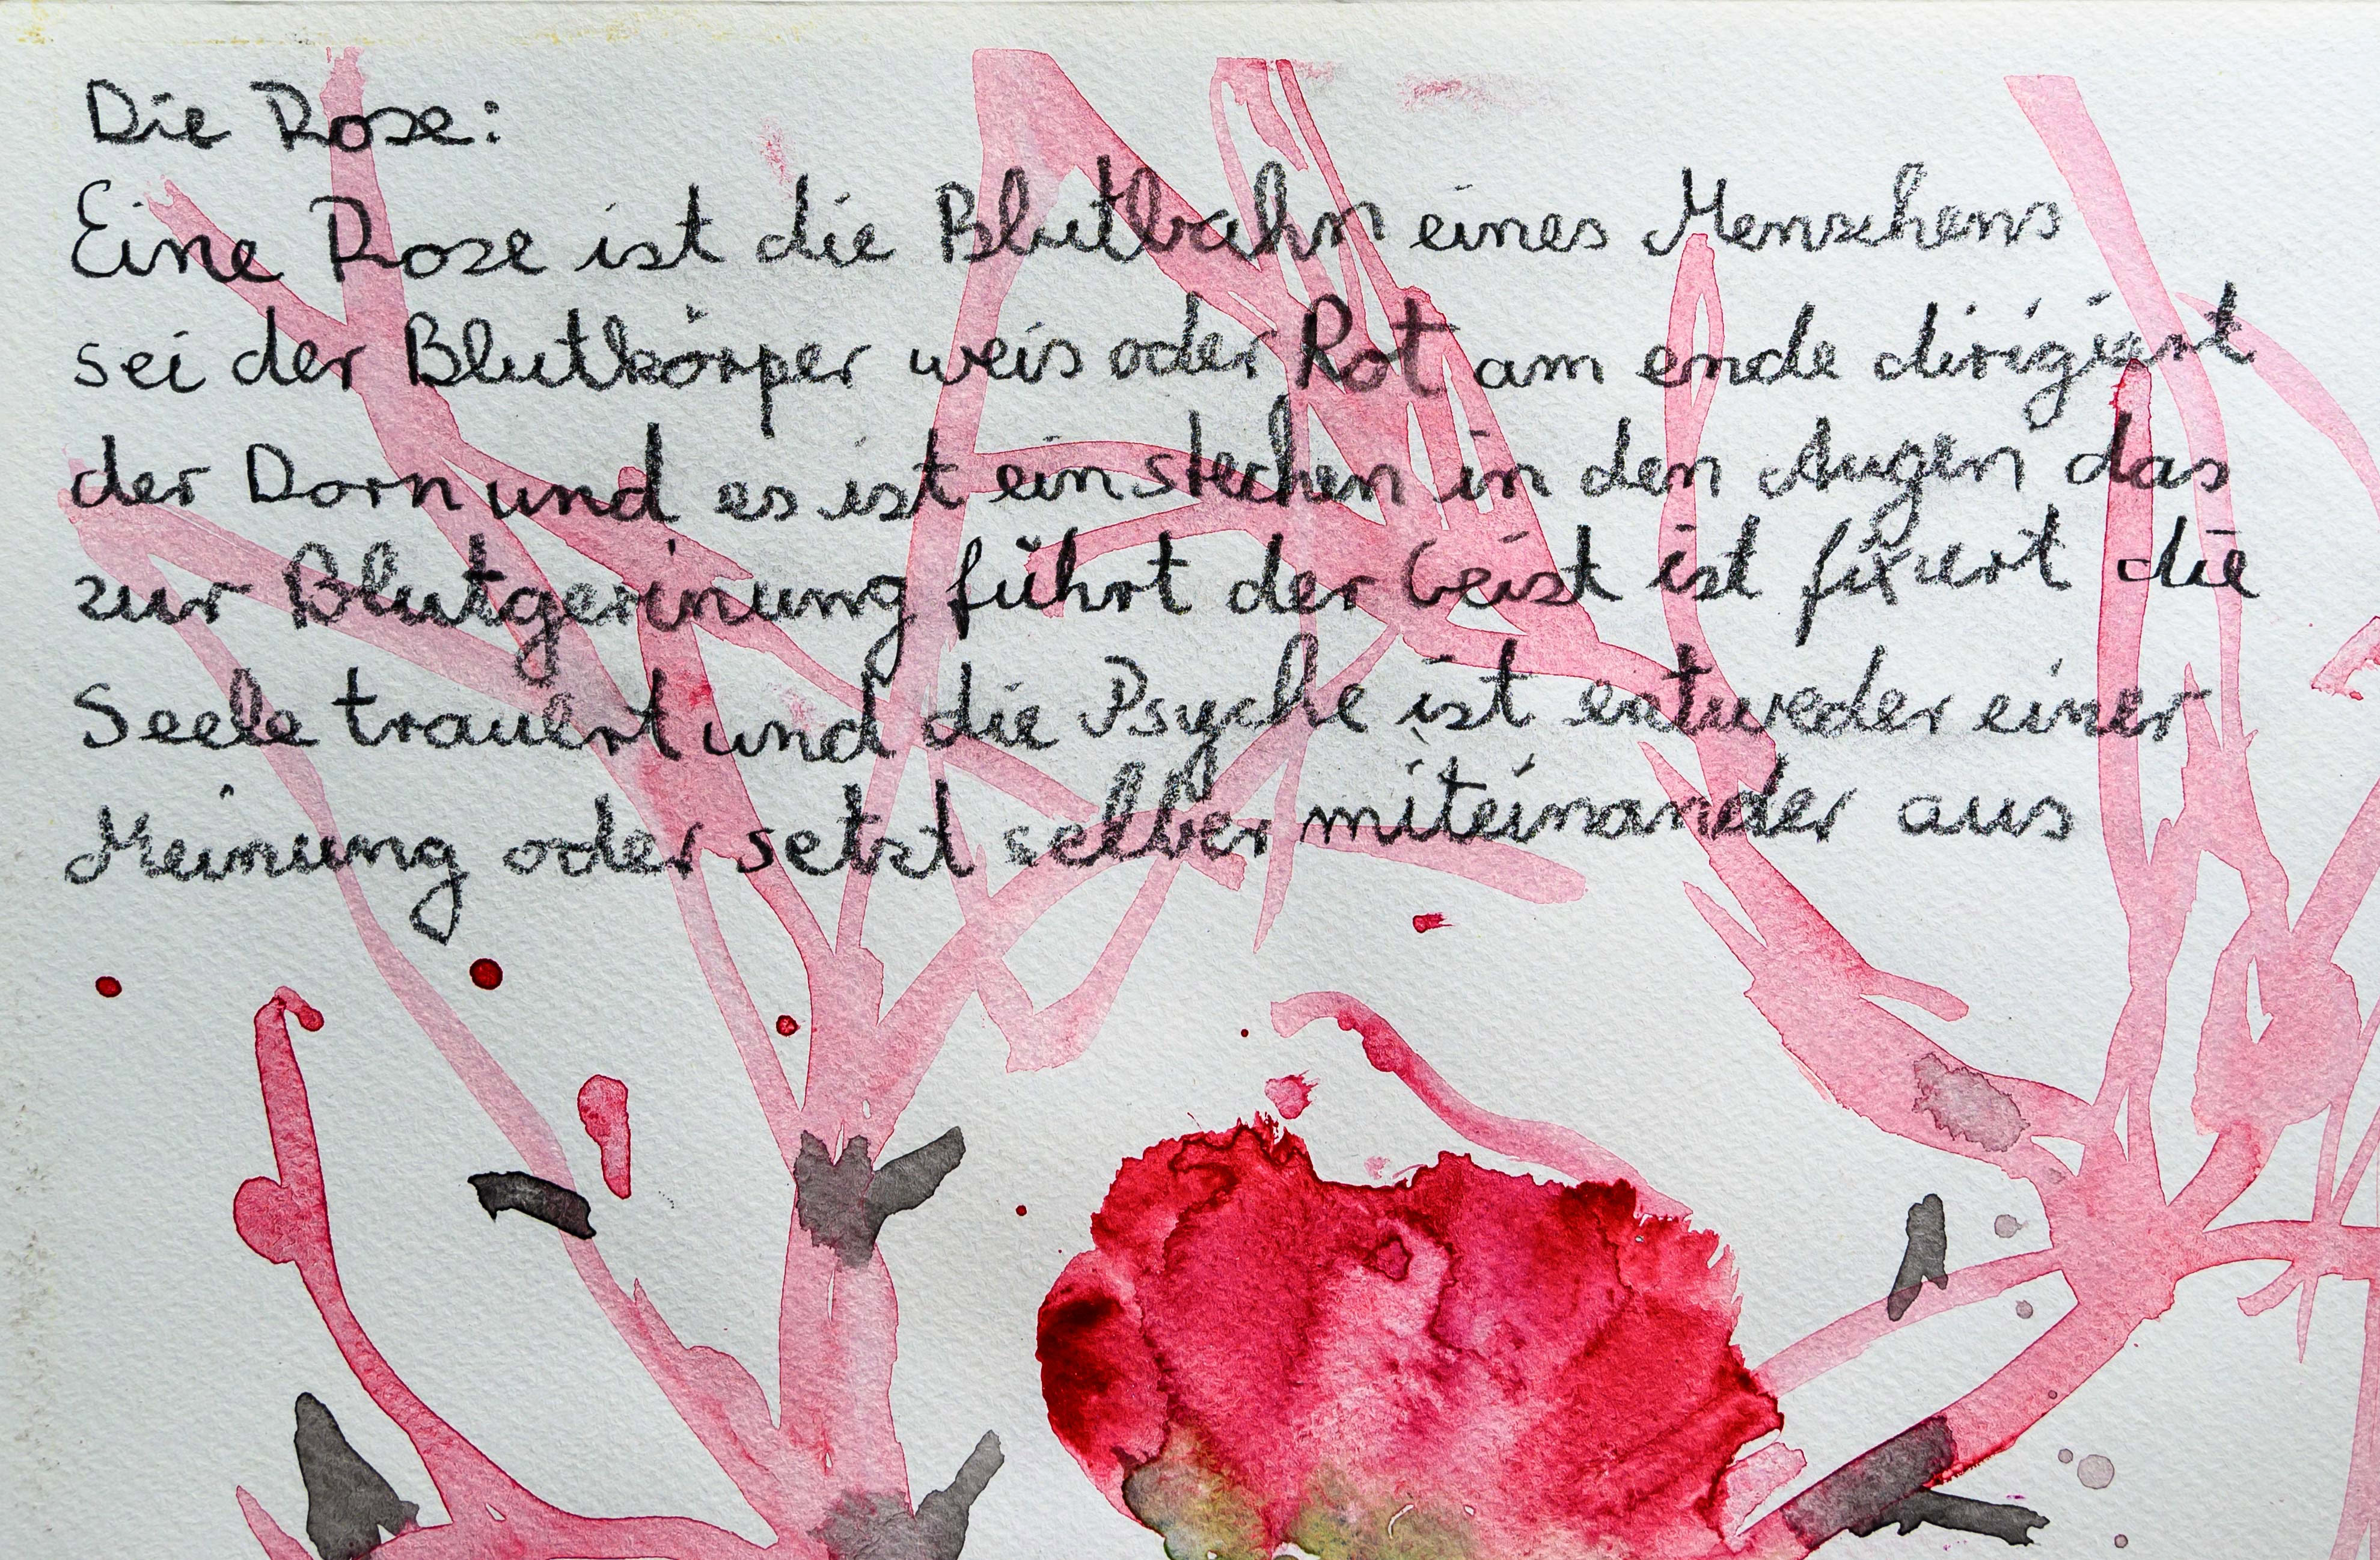 Die Rose:
Eine Rose ist die Blutbahn eines Menschens
sei der Blutkörper weis oder Rot am ende dirigiert
der Dorn und es ist ein stechen in den Augen das
zur Blutgerinung führt der Geist ist fixiert die
Seele trauert und die Psyche ist entweder einer
Meinung oder setzt selber miteinander aus